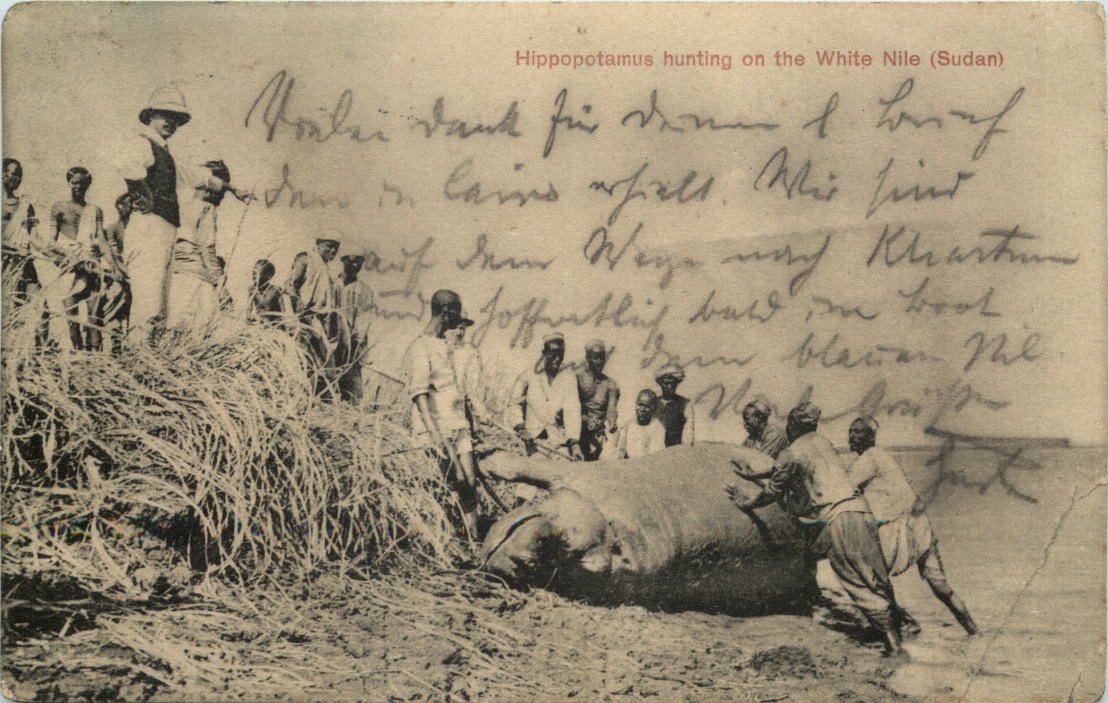 Hippopotamus hunting on the White Nile (Sudan)
Vielen Dank für Deinen l Brief
den in Cairo erhielt. Wir sind
auf dem Wege nach Khartum
und hoffentlich bald im Boot
dem blauen Nil
Grüße